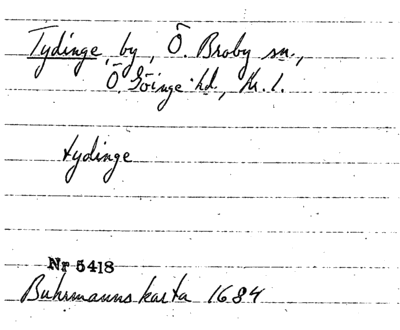 Tydinge, by, Ö. Broby sn.,
Ö. Göinge hd., Kr. l.
tydinge
Nr 5418
Buhrmanns karta 1684